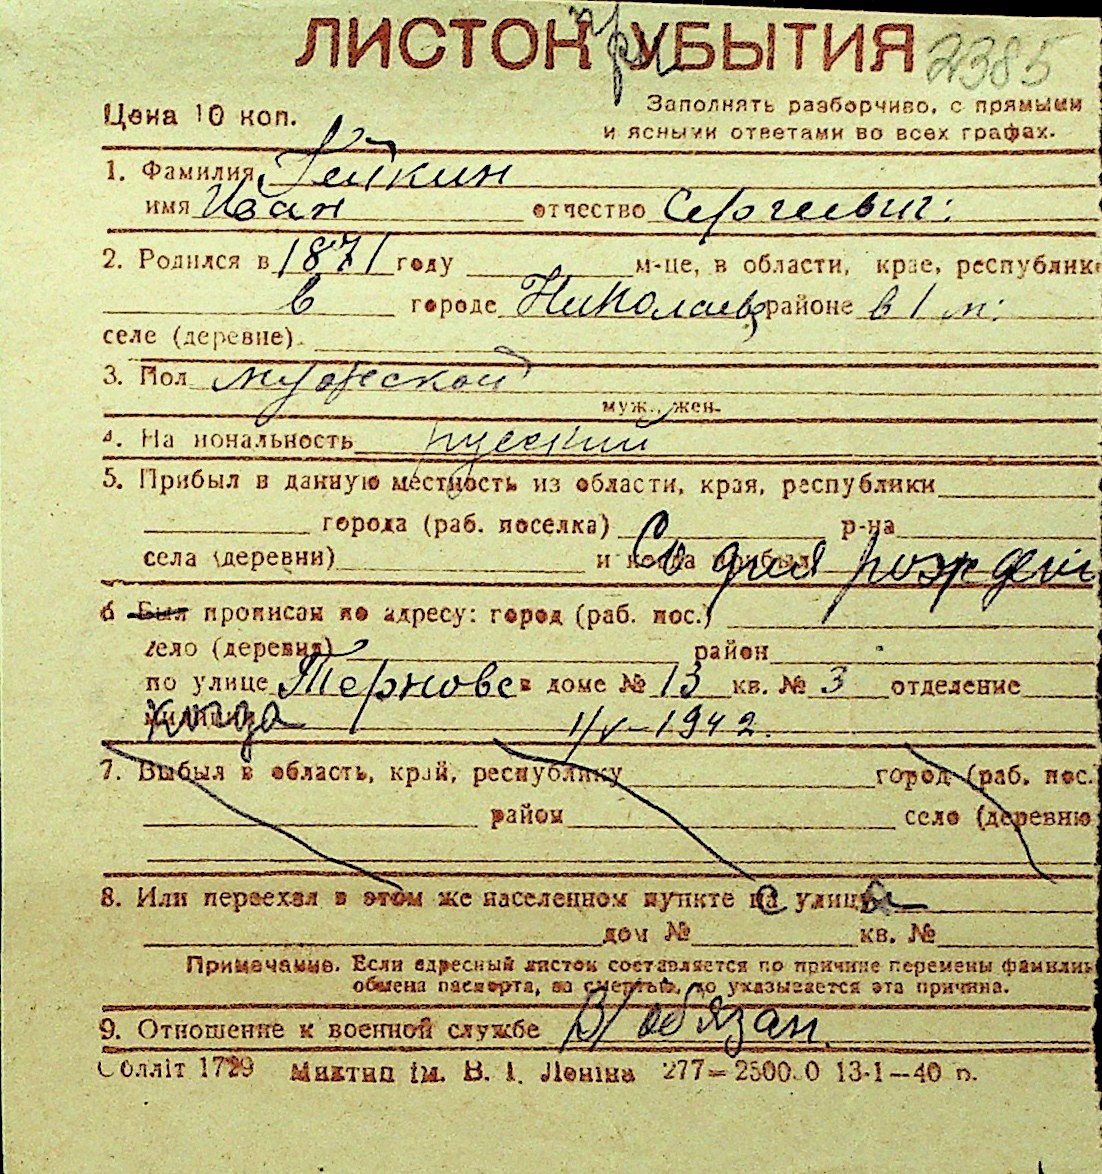 ЛИСТОК при УБЫТИЯ 2385
Цена 10 коп.
Заполнять разборчиво, с прямыми
и ясными ответами во всех графах.
1. Фамилия
имя Иван отчество Сергеевич:
2. Родился в 1871 году м-це, в области, крае, республик
в городе Николаев районе в 1 м:
селе (деревне)
3. Пол мужской
муж., жен.
4. На иональность русский
5. Прибыл в данную местность из области, края, республики
города (раб. поселка) р-на
села (деревни) и когда прибыл Со дня рождени
6 Был прописан по адресу: город (раб. пос.)
село (деревня) район
по улице Терновс в доме № 13 кв. № 3 отделение
милиции когда 1/V-1942.
7. Выбыл в область, край, республику город (раб. пос.)
район село (деревню
8. Или переехал в этом же населенном пункте с улицы
дом № кв. №
Примечание. Если адресный листок составляется по причине перемены фамилии
обмена паспорта, за смертью, то указывается эта причина.
9. Отношение к военной службе В/обязан.
Облліт 1729 Миктип ім. В. І. Леніна 277-2500.0 13-1-40 р.